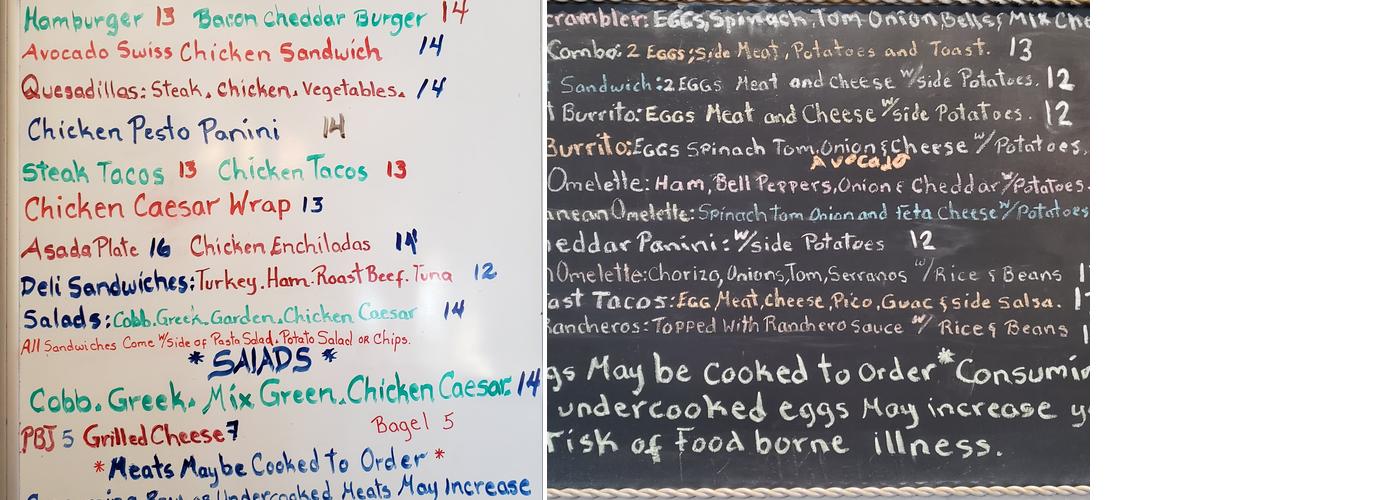 Hamburger 13 Bacon Cheddar Burger 14
Avocado Swiss Chicken Sandwich 14
Quesadillas: Steak, Chicken, Vegetables. 14
Chicken Pesto Panini 14
Steak Tacos 13 Chicken Tacos 13
Chicken Caesar Wrap 13
Asada Plate 16 Chicken Enchiladas 14
Deli Sandwiches: Turkey. Ham. Roast Beef. Tuna 12
Salads: Cobb. Greek. Garden. Chicken Caesar 14
All Sandwiches Come W/Side of Pasta Salad. Potato Salad or Chips.
* SAlADS *
Cobb. Greek. Mix Green. Chicken Caesar: 14
PBJ 5 Grilled Cheese 7 Bagel 5
* Meats Maybe Cooked to Order *
Consuming Raw or Undercooked Meats May Increase
crambler: EGGs, Spinach, Tom Onion, Bells, & Mix Che
Combo: 2 Eggs, Side Meat, Potatoes and Toast. 13
Sandwich: 2 EGGs Meat and Cheese w/side Potatoes. 12
t Burrito: EGGs Meat and Cheese w/side Potatoes. 12
Burrito: EGGs Spinach Tom, Onion & Cheese w/Potatoes,
Avocado
Omelette: Ham, Bell Peppers, Onion & Cheddar w/Potatoes.
anean Omelette: Spinach Tom Onion and Feta Cheese w/Potatoes
eddar Panini: w/side Potatoes 12
Omelette: Chorizo, Onions, Tom, Serranos w/Rice & Beans 1
ast Tacos: Egg, Meat, cheese, Pico, Guac & side Salsa. 1
Rancheros: Topped With Ranchero Sauce w/ Rice & Beans 1
gs May be Cooked to Order *Consumin
undercooked eggs May increase y
risk of Food borne illness.